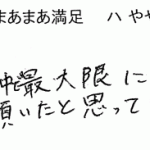 まあまあ満足 ハ やや
最大限に
頂いたと思って